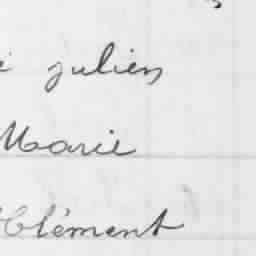 julien
Marie
Clément